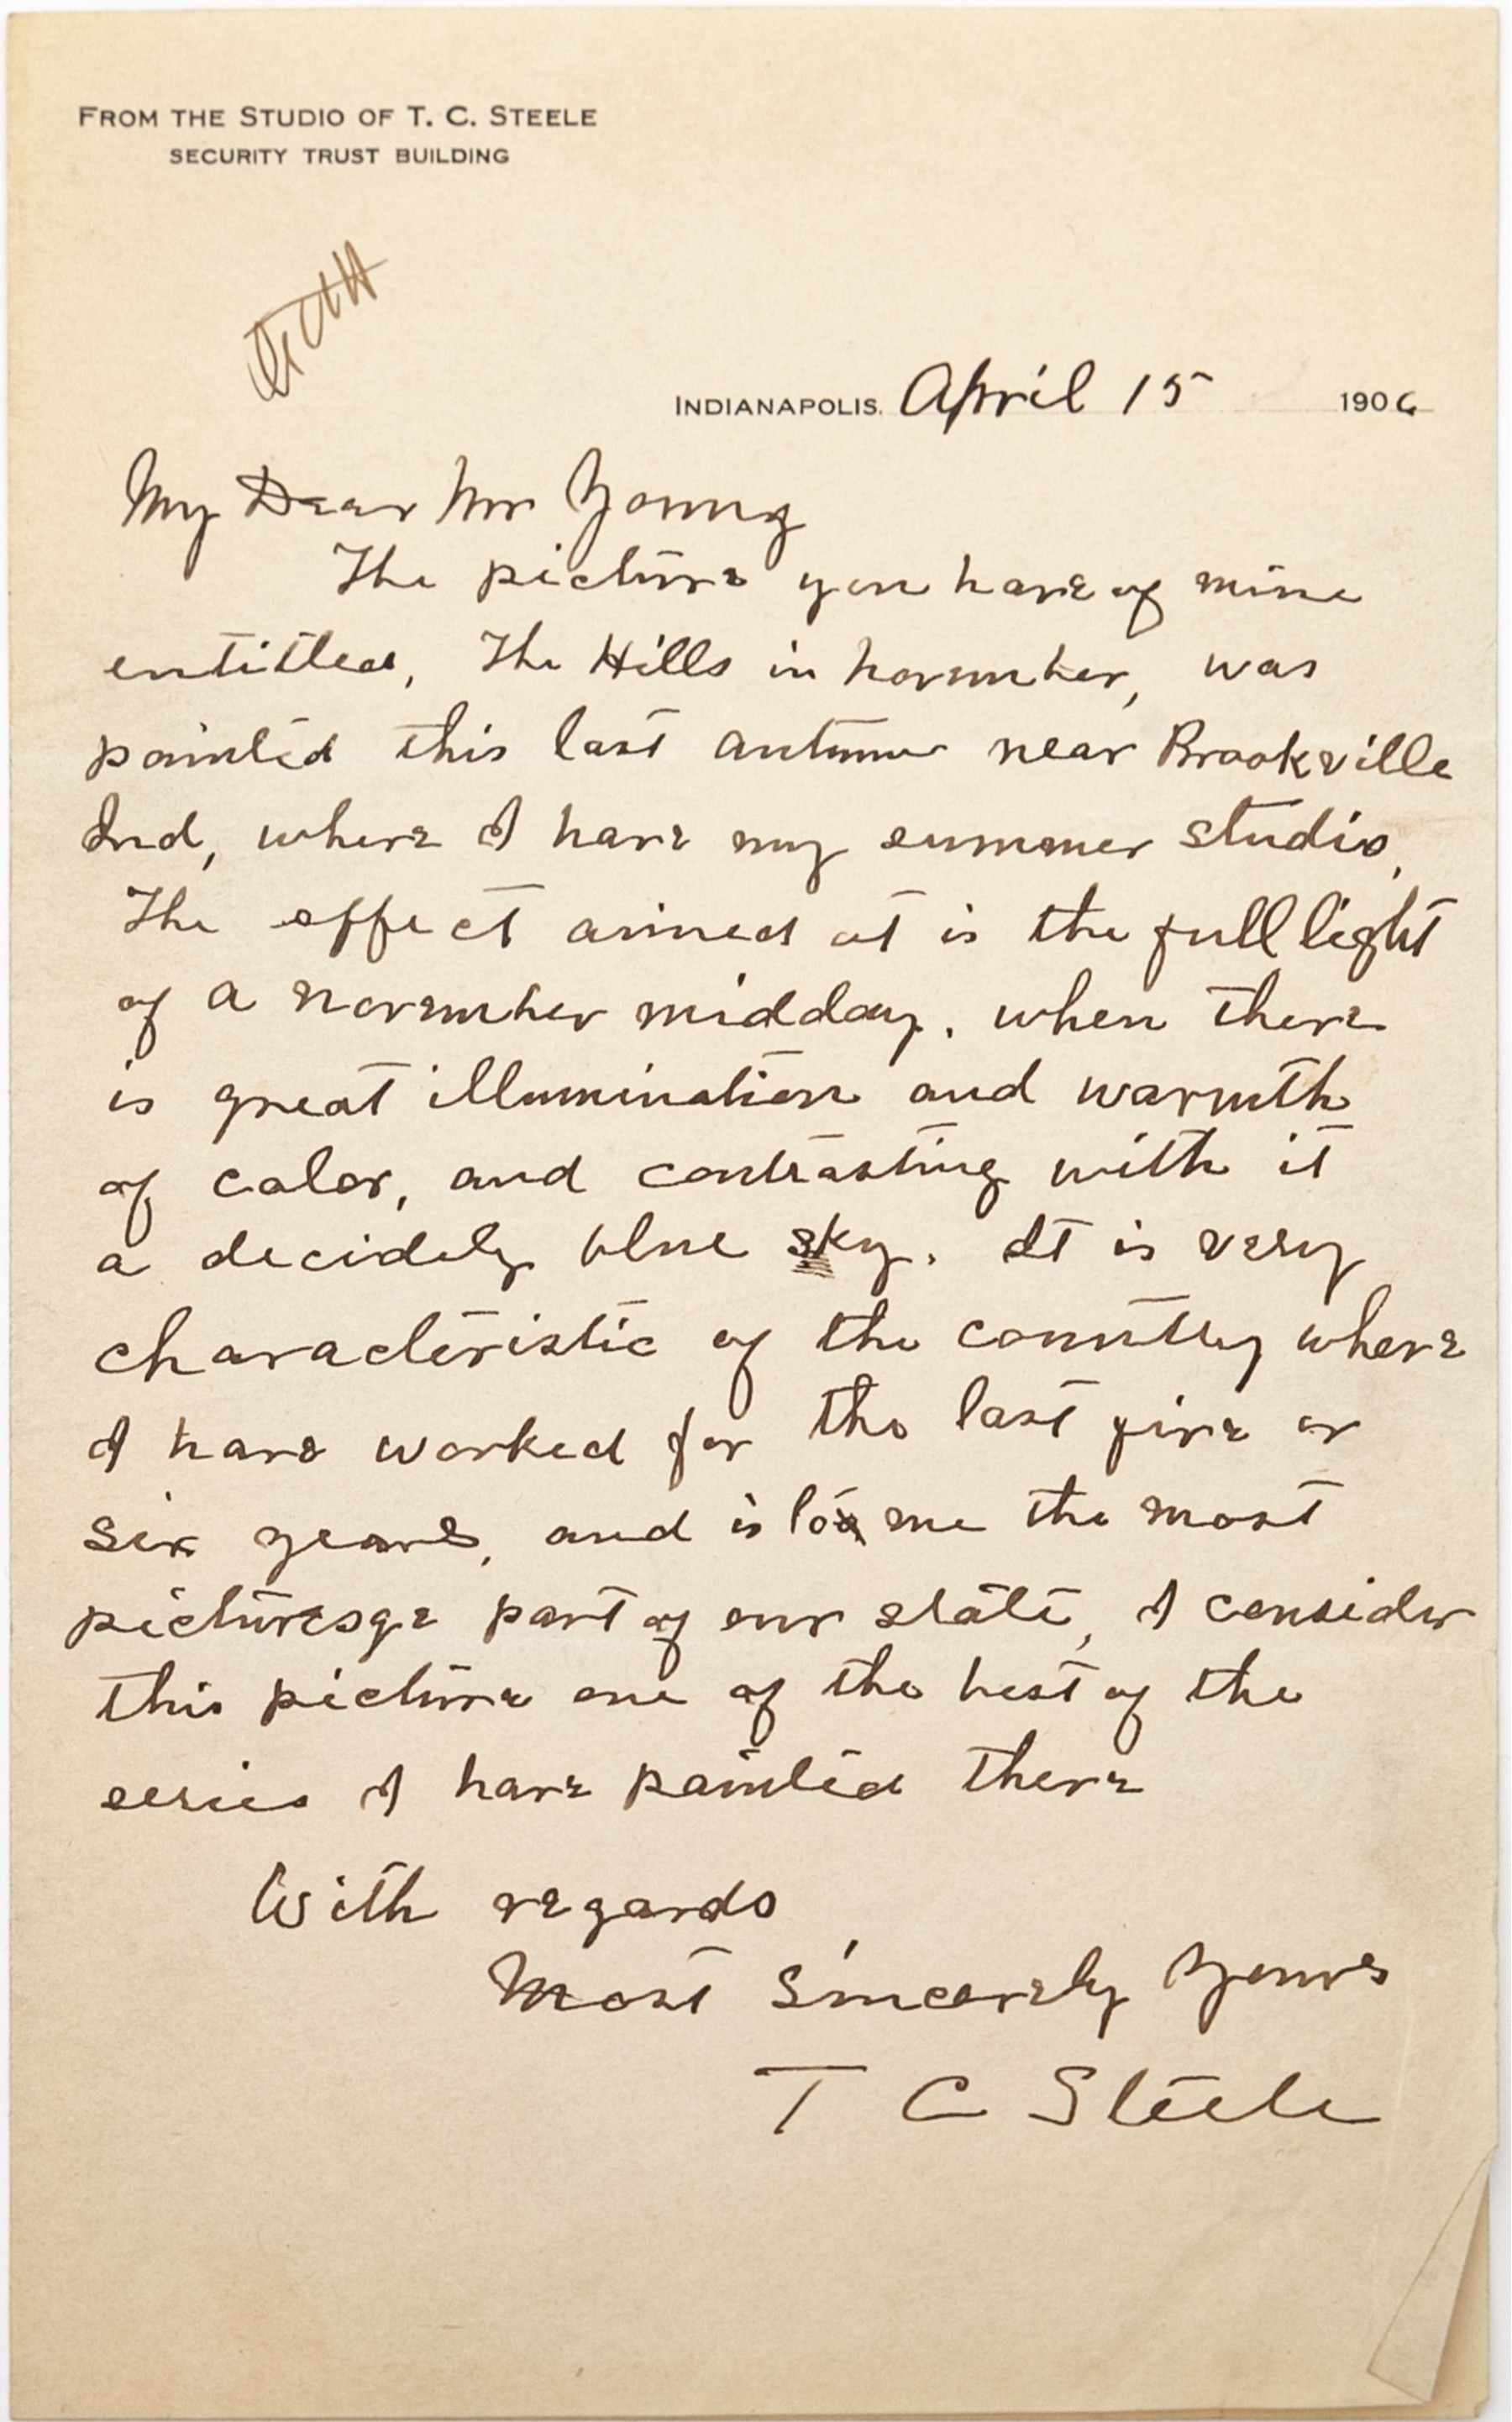 FROM THE STUDIO OF T. C. STEELE
SECURITY TRUST BUILDING
INDIANAPOLIS. April 15 1906
My Dear Mr Young
The picture you have of mine
entitled, The Hills in November, was
painted this last autumn near Brookville
Ind, where I have my summer studio,
The effect aimed at is the full light
of a November midday, when there
is great illumination and warmth
of color, and contrasting with it
a decidely blue sky. It is very
characteristic of the country where
I have worked for the last five or
six years, and is to me the most
picturesqe part of our state, I consider
this picture one of the best of the
series I have painted there
With regards
Most Sincerely Yours
T C Steele